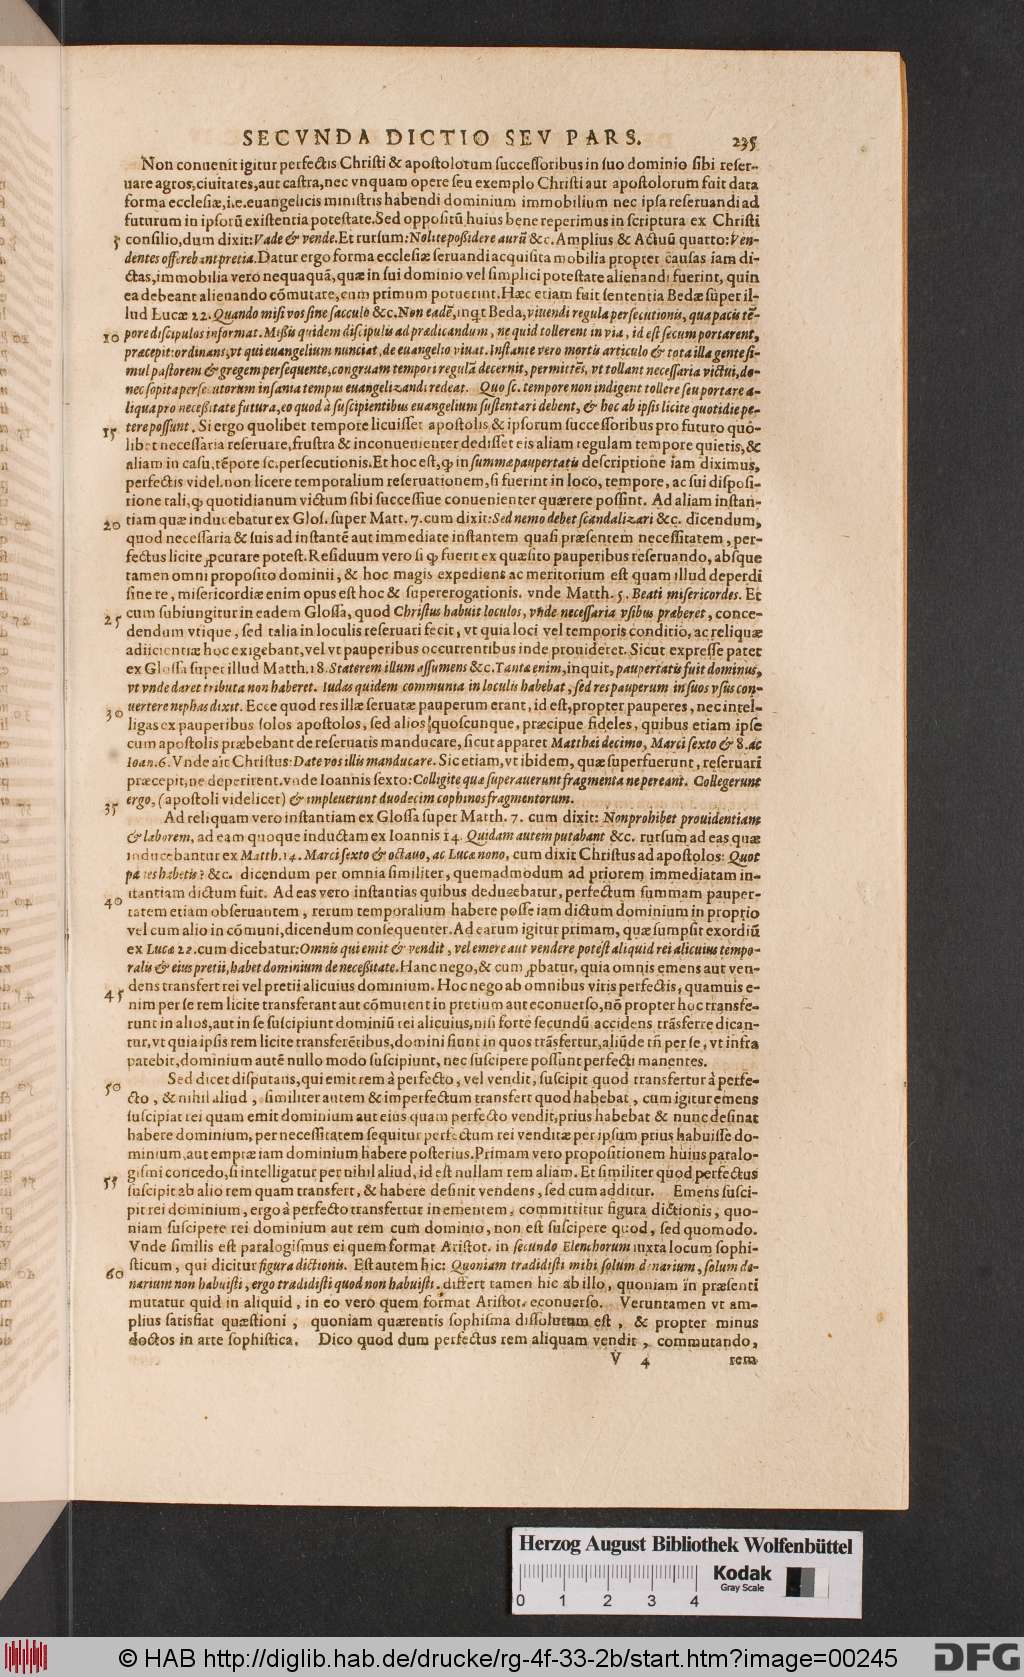 SECVNDA DICTIO SEV PARS. 235
Non conuenit igitur perfectis Christi & apostolorum successoribus in suo dominio sibi reser-
uare agros, ciuitates, aut castra, nec vnquam opere seu exemplo Christi aut apostolorum fuit data
forma ecclesiæ, i.e. euangelicis ministris habendi dominium immobilium nec ipsa reseruandi ad
futurum in ipsorũ existentia potestate. Sed oppositũ huius bene reperimus in scriptura ex Christi
5 consilio, dum dixit: Vade & vende. Et rursum: Nolite possidere aurũ &c. Amplius & Actuũ quarto: Ven-
dentes offerebant pretia. Datur ergo forma ecclesiæ seruandi acquisita mobilia propter causas iam di-
ctas, immobilia vero nequaquã, quæ in sui dominio vel simplici potestate alienandi fuerint, quin
ea debeant alienando cõmutare, cum primum potuerint. Hæc etiam fuit sententia Bedæ super il-
lud Lucæ 22. Quando misi vos sine sacculo &c. Non eadẽ, inqt Beda, viuendi regula persecutionis, qua pacis tẽ-
10 pore discipulos informat. Missis quidem discipulis ad prædicandum, ne quid tollerent in via, id est secum portarent,
præcepit: ordinans, vt qui euangelium nunciat, de euangelio viuat. Instante vero mortis articulo & tota illa gente si-
mul pastorem & gregem persequente, congruam tempori regulã decernit, permittẽs, vt tollant necessaria victui, do-
nec sopita persecutorum insania tempus euangelizandi redeat. Quo sc. tempore non indigent tollere seu portare a-
liqua pro necessitate futura, eo quod à suscipientibus euangelium sustentari debent, & hoc ab ipsis licite quotidie pe-
15 tere possunt. Si ergo quolibet tempore licuisset apostolis & ipsorum successoribus pro futuro quo-
libet necessaria reseruare, frustra & inconuenienter dedisset eis aliam regulam tempore quietis, &
aliam in casu, tẽpore sc. persecutionis. Et hoc est, ꝙ in summæ paupertatis descriptione iam diximus,
perfectis videl. non licere temporalium reseruationem, si fuerint in loco, tempore, ac sui disposi-
tione tali, ꝙ quotidianum victum sibi successiue conuenienter quærere possint. Ad aliam instan-
20 tiam quæ inducebatur ex Glos. super Matt. 7. cum dixit: Sed nemo debet scandalizari &c. dicendum,
quod necessaria & suis ad instantẽ aut immediate instantem quasi præsentem necessitatem, per-
fectus licite ꝓcurare potest. Residuum vero si ꝙ fuerit ex quæsito pauperibus reseruando, absque
tamen omni proposito dominii, & hoc magis expediens ac meritorium est quam illud deperdi
sinere, misericordiæ enim opus est hoc & supererogationis. vnde Matth. 5. Beati misericordes. Et
25 cum subiungitur in eadem Glossa, quod Christus habuit loculos, vnde necessaria vsibus præberet, conce-
dendum vtique, sed talia in loculis reseruari fecit, vt quia loci vel temporis conditio, ac reliquæ
adiicientiæ hoc exigebant, vel vt pauperibus occurrentibus inde prouideret. Sicut expresse patet
ex Glossa super illud Matth. 18. Staterem illum assumens &c. Tanta enim, inquit, paupertatis fuit dominus,
vt vnde daret tributa non haberet. Iudas quidem communia in loculis habebat, sed res pauperum in suos vsus con-
30 uertere nephas dixit. Ecce quod res illæ seruatæ pauperum erant, id est, propter pauperes, nec intel-
ligas ex pauperibus solos apostolos, sed alios quoscunque, præcipue fideles, quibus etiam ipse
cum apostolis præbebant de reseruatis manducare, sicut apparet Matthæi decimo, Marci sexto & 8. ac
Ioan. 6. Vnde ait Christus: Date vos illis manducare. Sic etiam, vt ibidem, quæ superfuerunt, reseruari
præcepit, ne deperirent. vnde Ioannis sexto: Colligite quæ superauerunt fragmenta ne pereant. Collegerunt
35 ergo, (apostoli videlicet) & impleuerunt duodecim cophinos fragmentorum.
Ad reliquam vero instantiam ex Glossa super Matth. 7. cum dixit: Non prohibet prouidentiam
& laborem, ad eam quoque inductam ex Ioannis 14. Quidam autem putabant &c. rursum ad eas quæ
inducebantur ex Matth. 14. Marci sexto & octauo, ac Lucæ nono, cum dixit Christus ad apostolos: Quot
panes habetis? &c. dicendum per omnia similiter, quemadmodum ad priorem immediatam in-
40 stantiam dictum fuit. Ad eas vero instantias quibus deducebatur, perfectum summam pauper-
tatem etiam obseruantem, rerum temporalium habere posse iam dictum dominium in proprio
vel cum alio in cõmuni, dicendum consequenter. Ad earum igitur primam, quæ sumpsit exordiũ
ex Lucæ 22. cum dicebatur: Omnis qui emit & vendit, vel emere aut vendere potest aliquid rei alicuius tempo-
ralis & eius pretii, habet dominium de necessitate. Hanc nego, & cum ꝓbatur, quia omnis emens aut ven-
45 dens transfert rei vel pretii alicuius dominium. Hoc nego ab omnibus viris perfectis, quamuis e-
nim per se rem licite transferant aut cõmutent in pretium aut econuerso, nõ propter hoc transfe-
runt in alios, aut in se suscipiunt dominiũ rei alicuius, nisi forte secundũ accidens trãsferre dican-
tur, vt quia ipsis rem licite transferẽtibus, domini fiunt in quos trãsfertur, aliũde tñ per se, vt infra
patebit, dominium autẽ nullo modo suscipiunt, nec suscipere possunt perfecti manentes.
50 Sed dicet disputans, qui emit rem à perfecto, vel vendit, suscipit quod transfertur à perfe-
cto, & nihil aliud, similiter autem & imperfectum transfert quod habebat, cum igitur emens
suscipiat rei quam emit dominium aut eius quam perfecto vendit, prius habebat & nunc desinat
habere dominium, per necessitatem sequitur perfectum rei venditæ per ipsum prius habuisse do-
minium, aut emptæ iam dominium habere posterius. Primam vero propositionem huius paralo-
55 gismi concedo, si intelligatur per nihil aliud, id est nullam rem aliam. Et similiter quod perfectus
suscipit ab alio rem quam transfert, & habere desinit vendens, sed cum additur. Emens susci-
pit rei dominium, ergo à perfecto transfertur in ementem, committitur figura dictionis, quo-
niam suscipere rei dominium aut rem cum dominio, non est suscipere quod, sed quomodo.
Vnde similis est paralogismus ei quem format Aristot. in secundo Elenchorum iuxta locum sophi-
60 sticum, qui dicitur figura dictionis. Est autem hic: Quoniam tradidisti mihi solum denarium, solum de-
narium non habuisti, ergo tradidisti quod non habuisti. differt tamen hic ab illo, quoniam in præsenti
mutatur quid in aliquid, in eo vero quem format Aristot. econuerso. Veruntamen vt am-
plius satisfiat quæstioni, quoniam quærentis sophisma dissolutum est, & propter minus
doctos in arte sophistica. Dico quod dum perfectus rem aliquam vendit, commutando,
V 4 rem
Herzog August Bibliothek Wolfenbüttel
Kodak
Gray Scale
0 1 2 3 4
© HAB http://diglib.hab.de/drucke/rg-4f-33-2b/start.htm?image=00245
DFG